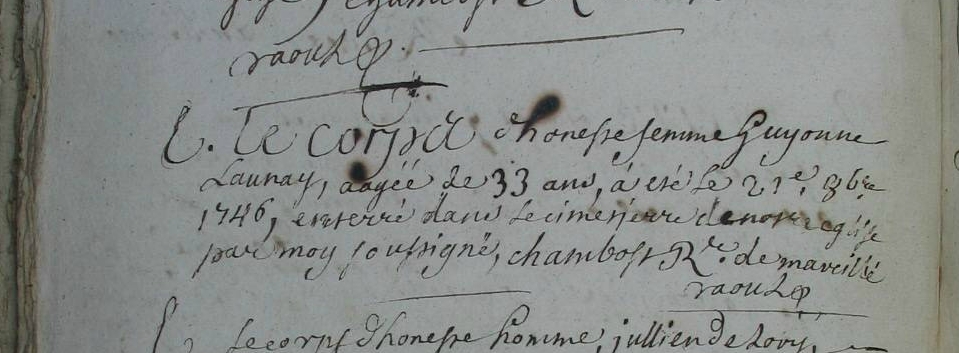 raoul
E. Le corps d'honeste femme Guyonne
Launay, aagée de 33 ans, a eté le 21e. 8bre
1746, enterré dans le cimetierre de notre eglise
par moy soussigné, chambost Rr. de marcillé
raoul
E. le corps d'honeste homme, jullien de